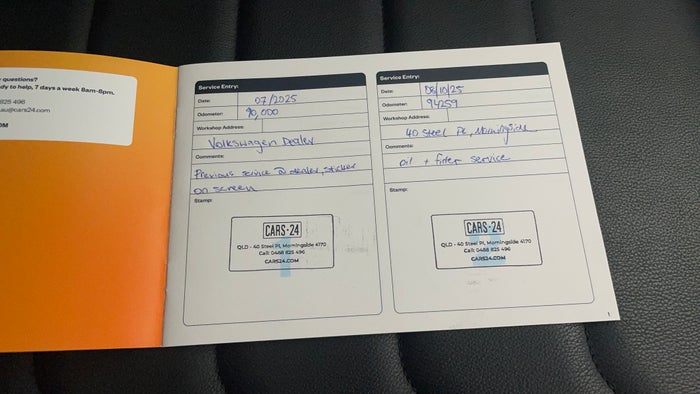 questions?
dy to help, 7 days a week 8am-8pm.
825 496
au@cars24.com
OM
Service Entry:
Date: 07/2025
Odometer: 90,000
Workshop Address:
Volkswagen Dealer
Comments:
Previous service @ dealer, sticker
on screen
Stamp:
CARS·24
QLD - 40 Steel Pl, Morningside 4170
Call: 0488 825 496
CARS24.COM
Service Entry:
Date: 08/10/25
Odometer: 94259
Workshop Address:
40 Steel PL, Morningside
Comments:
oil + filter service
Stamp:
CARS·24
QLD - 40 Steel Pl, Morningside 4170
Call: 0488 825 496
CARS24.COM
1